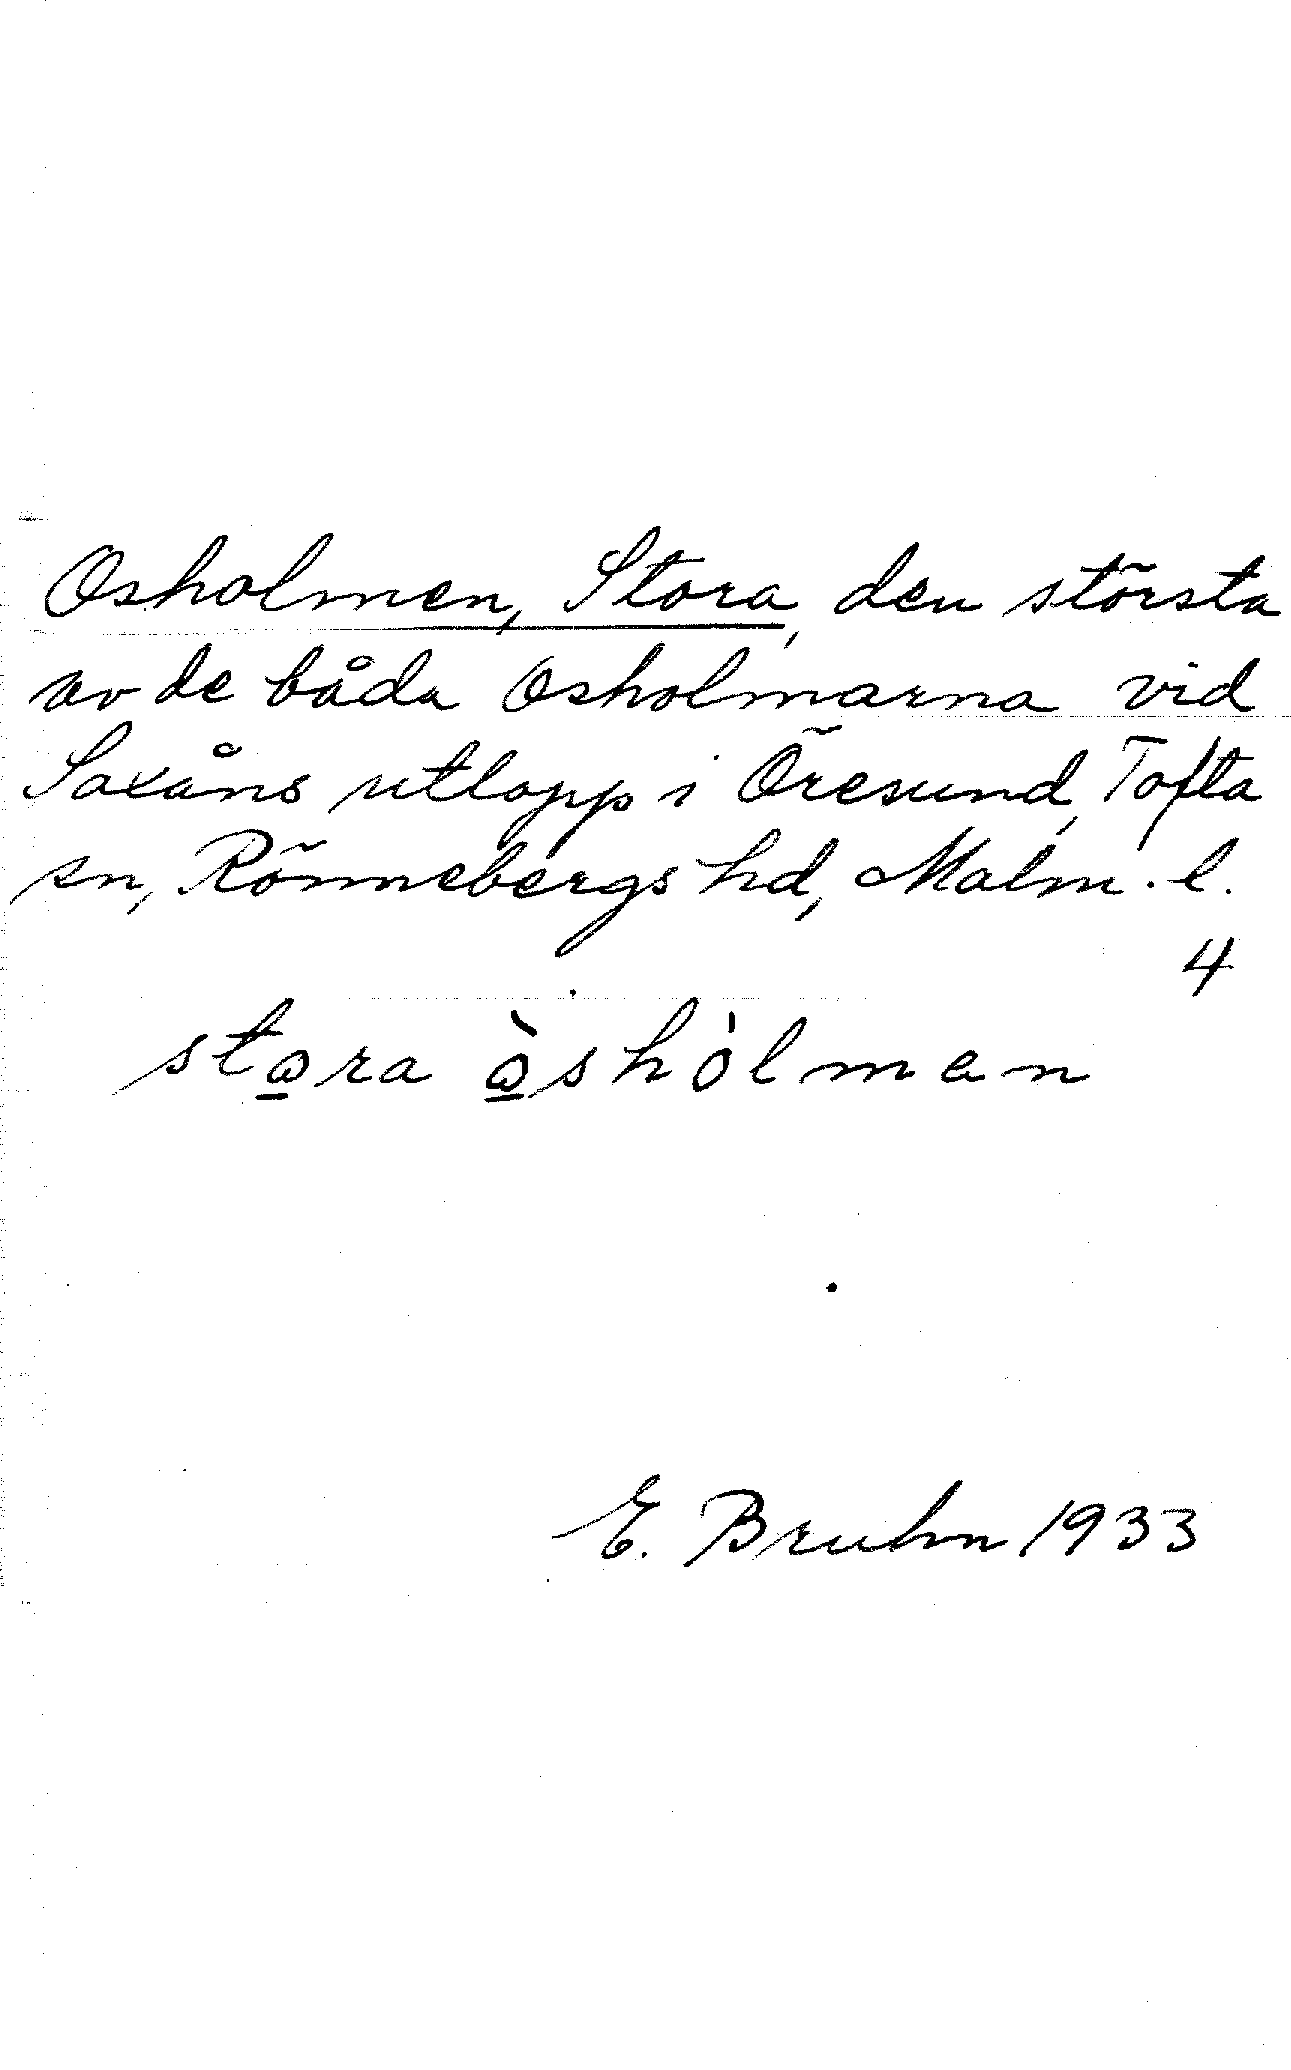 Osholmen, Stora, den största
av de båda Osholmarna vid
Saxåns utlopp i Öresund, Tofta
sn, Rönnebergs hd, Malm. l.
4
stora òshòlmen
E. Bruhn 1933